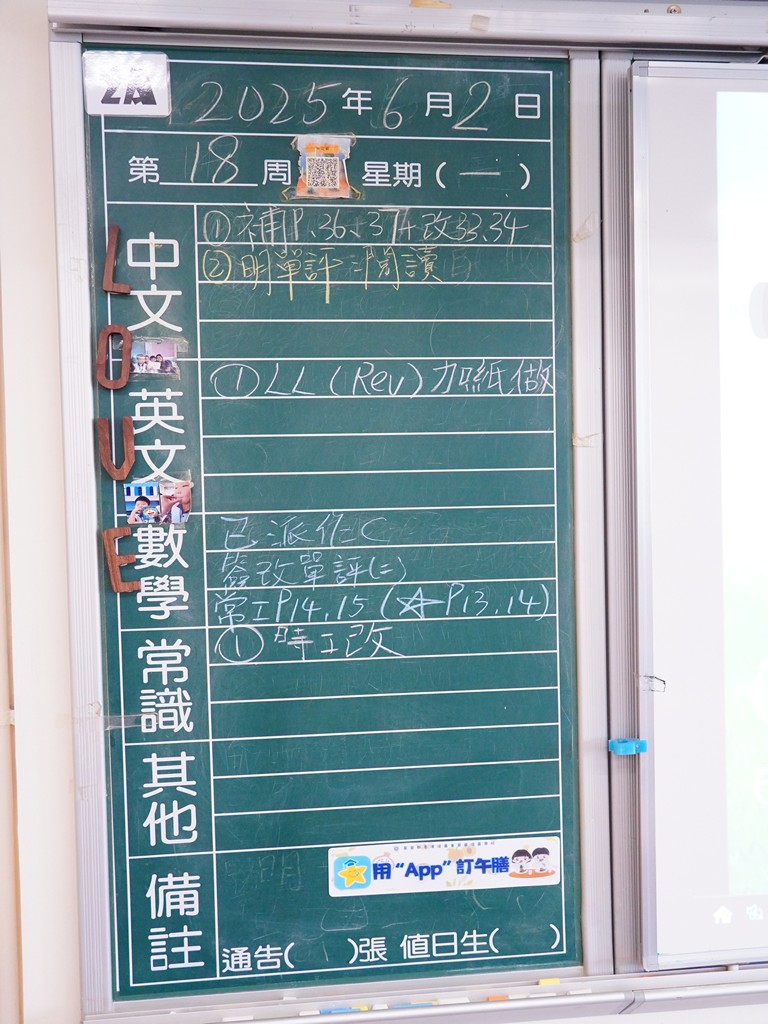 2A
2025年6月2日
第18周 星期(一)
LOVE
中文
①補P.36、37+改33、34
②明單評:閱讀
英文
①LL(Rev)加紙做
數學
已派作C
簽改單評(二)
常工P14,15(☆P13,14)
常識
①時工改
其他
備註
用“App”訂午膳
通告( )張 值日生( )